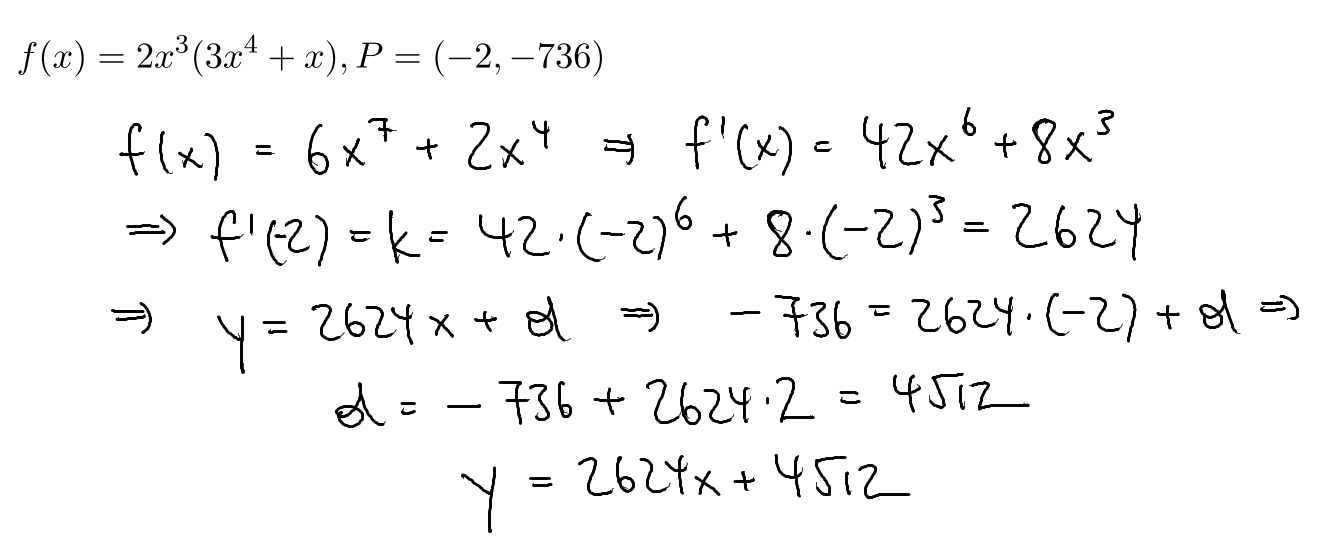 f(x) = 2x³(3x⁴ + x), P = (−2, −736)
f(x) = 6x⁷ + 2x⁴ ⇒ f'(x) = 42x⁶ + 8x³
⇒ f'(-2) = k = 42·(-2)⁶ + 8·(-2)³ = 2624
⇒ y = 2624x + d ⇒ -736 = 2624·(-2) + d ⇒
d = -736 + 2624·2 = 4512
y = 2624x + 4512